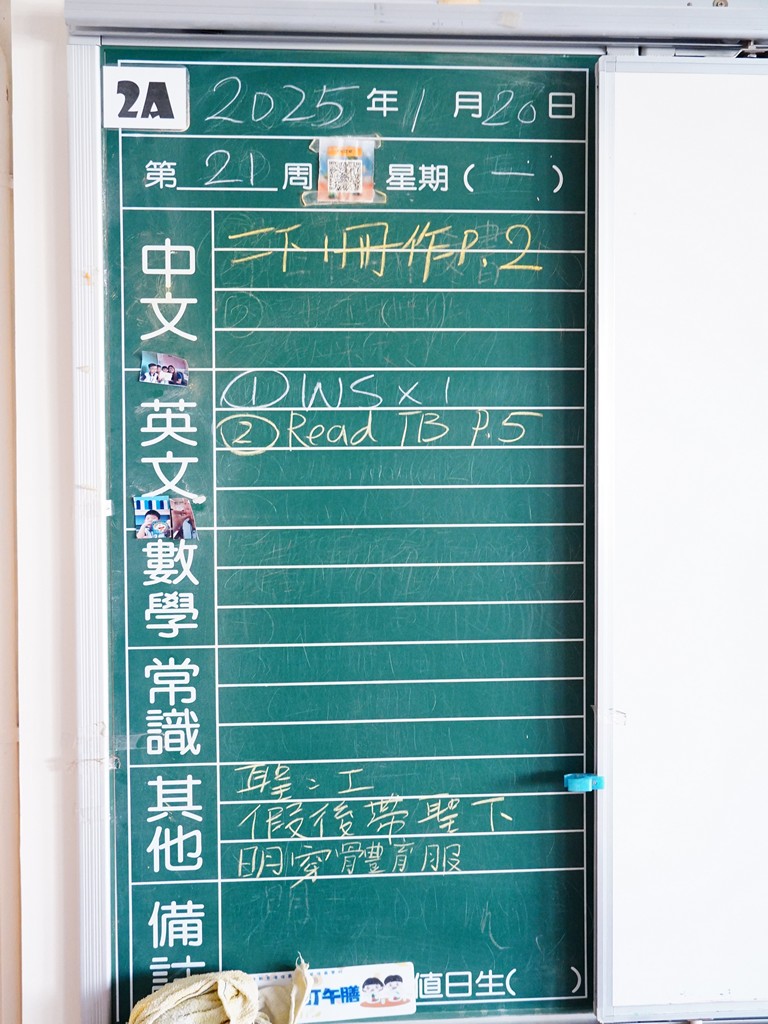 2A 2025年1月20日
第21周 星期(一)
中文
二下1冊作P.2
英文
①WS x 1
②Read TB P.5
數學
常識
其他
聖:工
假後帶聖下
明穿體育服
備註
訂午膳
值日生( )